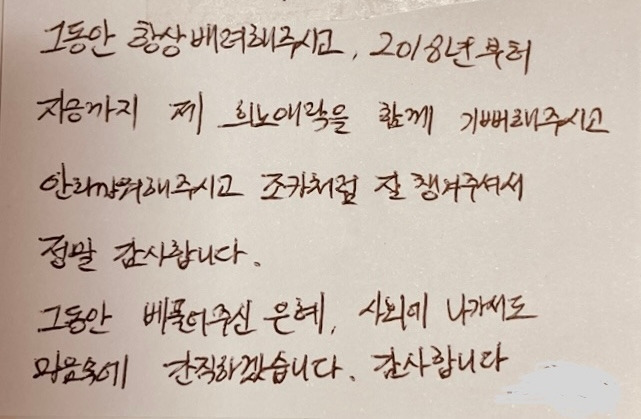 그동안 항상 배려해주시고, 2018년부터
지금까지 제 희노애락을 함께 기뻐해주시고
안타까워해주시고 조카처럼 잘 챙겨주셔서
정말 감사합니다.
그동안 베풀어주신 은혜, 사회에 나가서도
마음속에 간직하겠습니다. 감사합니다